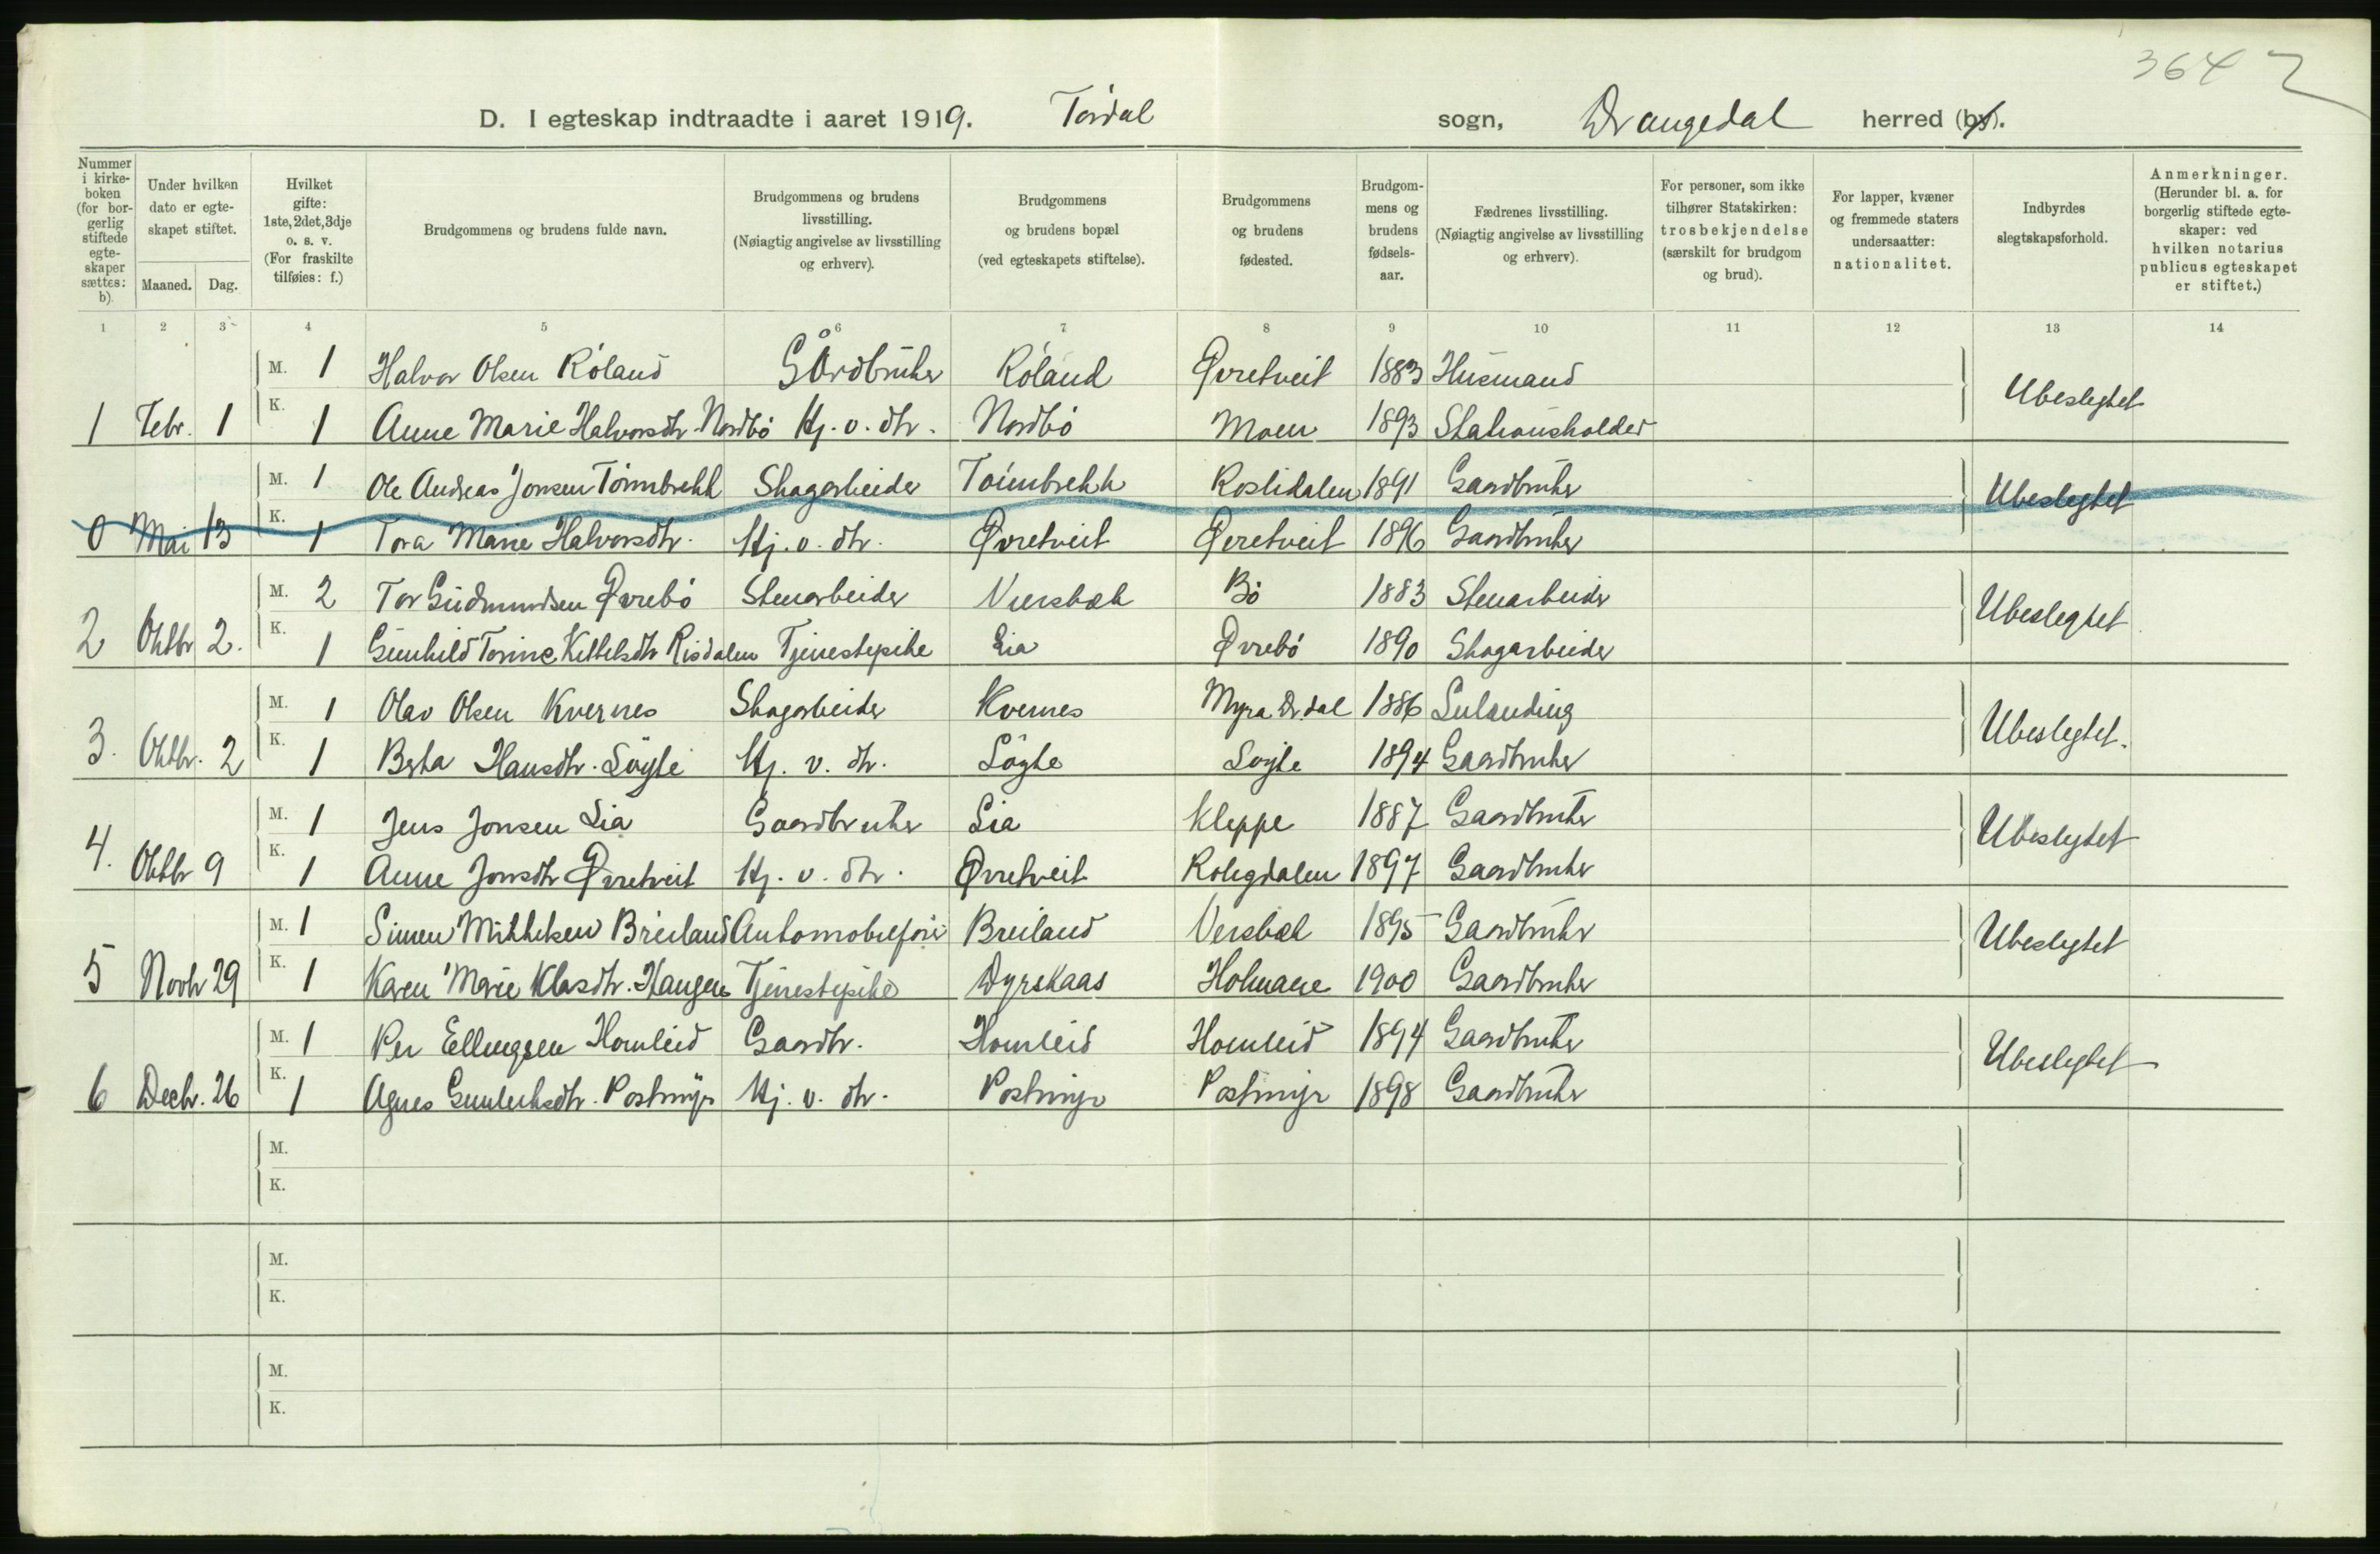 3642
D. I egteskap indtraadte i aaret 1919. Tördal sogn, Drangedal herred (by).
Nummer i kirkeboken (for borgerlig stiftede egteskaper sættes: b).
Under hvilken dato er egteskapet stiftet.
Maaned. Dag.
Hvilket gifte: 1ste, 2det, 3dje o. s. v. (For fraskilte tilføies: f.)
Brudgommens og brudens fulde navn.
Brudgommens og brudens livsstilling. (Nøiagtig angivelse av livsstilling og erhverv).
Brudgommens og brudens bopæl (ved egteskapets stiftelse).
Brudgommens og brudens fødested.
Brudgommens og brudens fødselsaar.
Fædrenes livsstilling. (Nøiagtig angivelse av livsstilling og erhverv).
For personer, som ikke tilhører Statskirken: trosbekjendelse (særskilt for brudgom og brud).
For lapper, kvæner og fremmede staters undersaatter: nationalitet.
Indbyrdes slegtskapsforhold.
Anmerkninger. (Herunder bl. a. for borgerlig stiftede egteskaper: ved hvilken notarius publicus egteskapet er stiftet.)
1 2 3 4 5 6 7 8 9 10 11 12 13 14
M. 1 Halvor Olsen Róland Gårdbruker Róland Øvretveit 1883 Husmand Ubeslegtet
1 Febr. 1 K. 1 Anne Marie Halvorsdtr Nordbó Hj. v. dtr. Nordbó Moen 1893 Stationsholder
M. 1 Ole Andreas Jonsen Tórnbrekk Skogarbeider Tórnbrekk Roslidalen 1891 Gaardbruker Ubeslegtet
0 Mai 13 K. 1 Tora Marie Halvorsdtr. Hj. v. dtr. Øvretveit Øvretveit 1896 Gaardbruker
M. 2 Tor Gudmundsen Øvrebó Stenarbeider Bó 1883 Stenarbeider Ubeslegtet
2 Oktbr 2. K. 1 Gunhild Torine Kittelsdtr Risdalen Tjenestepike Lia Øvrebó 1890 Skogarbeider
M. 1 Olav Olsen Kvernes Skogarbeider Kvernes Myra Dr.dal 1886 Ubeslegtet.
3. Oktbr. 2 K. 1 Berta Hansdtr. Lögte Hj. v. dtr. Lögte Lögte 1894 Gaardbruker
M. 1 Jens Jonsen Lia Gaardbruker Lia Kleppe 1887 Gaardbruker Ubeslegtet
4. Oktbr 9 K. 1 Anne Jonsdtr Øvretveit Hj. v. dtr. Øvretveit 1897 Gaardbruker
M. 1 Simen Mikkelsen Breiland Breiland Versbæk 1895 Gaardbruker Ubeslegtet
5 Novbr 29 K. 1 Karen Marie Klasdtr. Haugen Tjenestepike Dyrskaas Holmane 1900 Gaardbruker
M. 1 Per Ellingsen Homleid Gaardbr. Homleid Homleid 1894 Gaardbruker Ubeslegtet
6 Decbr. 26 K. 1 Agnes Gunleiksdtr. Postmyr Hj. v. dtr. Postmyr Postmyr 1898 Gaardbruker
M.
K.
M.
K.
M.
K.